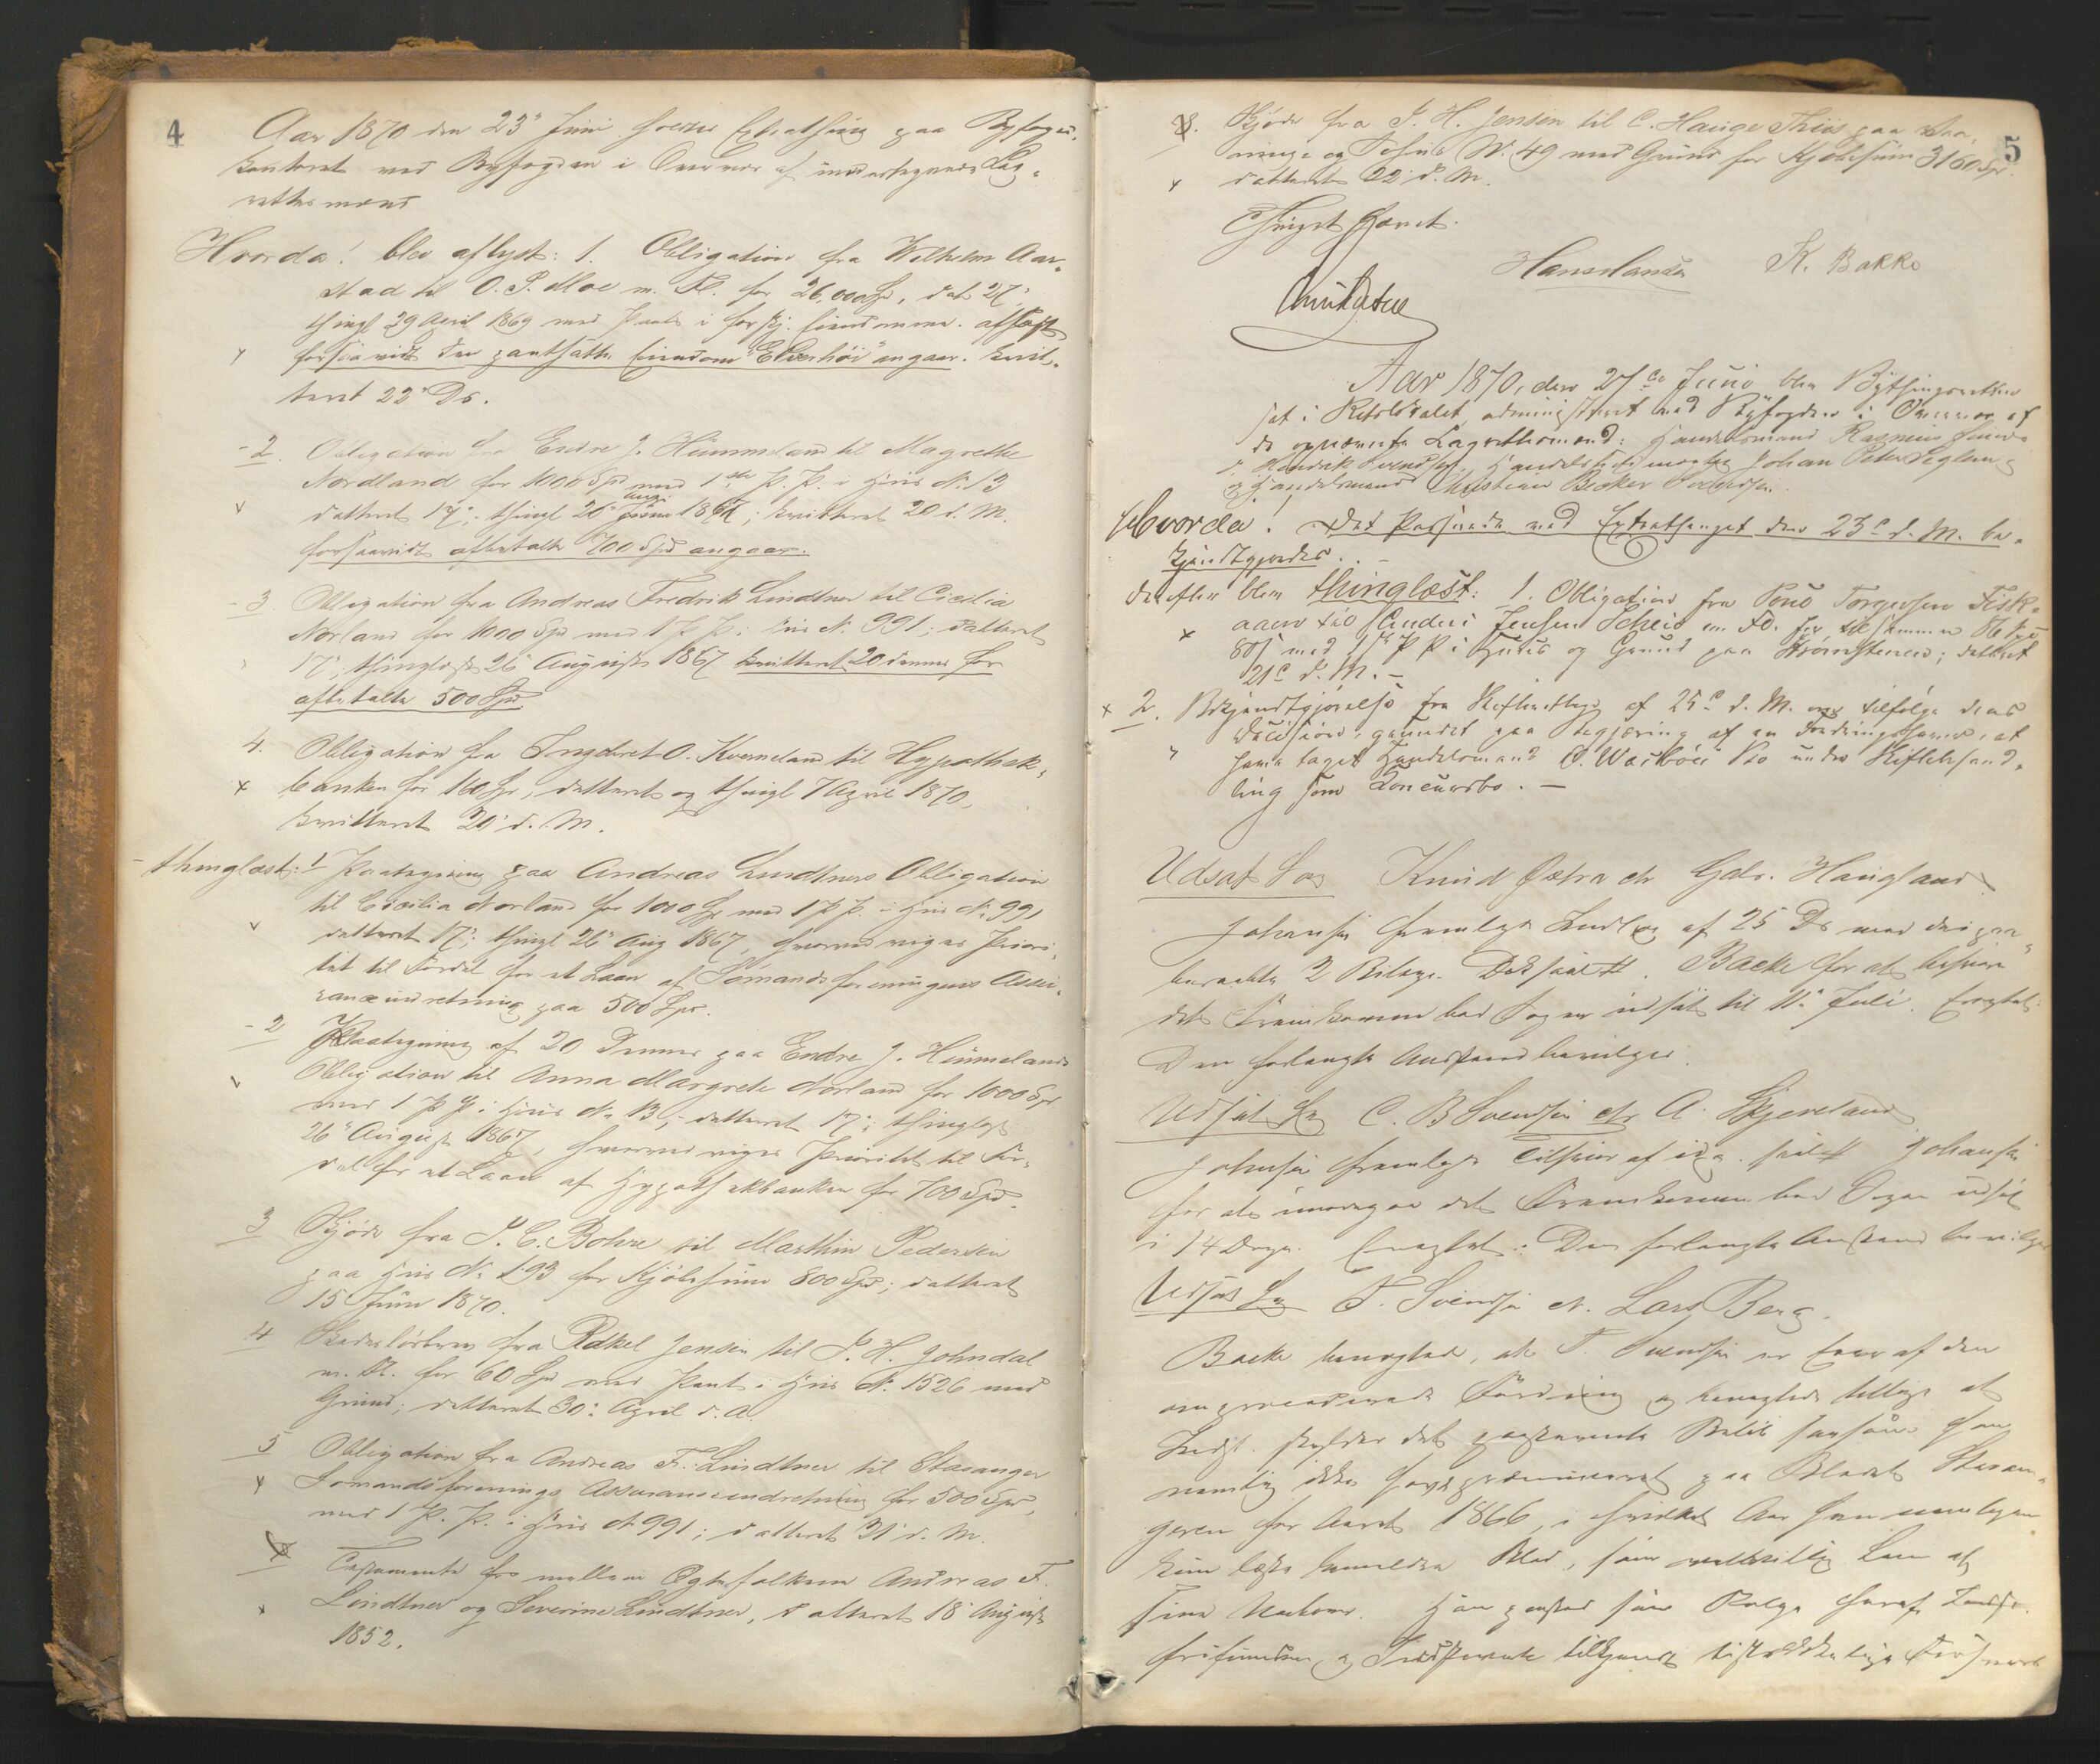 4
Aar 1870 den 23' Juni holdtes Extrathing paa Byfoged-
kontoret med Byfogden i Overvær af undertegnede Lag-
rettesmænd
Hvorda! blev aflyst: 1. Obligation fra Wilhelm Aar-
stad til O. P. Moe m. Fl. for 26,000 Sp, dat 27'
thingl 29 April 1869 med Pant i forskj. Eiendomme. aflæst
forsaavidt den pantsatte Eiendom "Elverhöi" angaar. kvit-
teret 22' Ds.
2. Obligation fra Endre J. Hummeland til Magrethe
Nordland for 1000 Spd med 1ste P. P. i Huus No 13
datteret 17', thingl 26' Augi 1867; kvitteret 20 d. M.
forsaavidt afbetalte 700 Spd angaar.
3. Obligation fra Andreas Fredrik Lindtner til Cicilia
Norland for 1000 Spd med 1 P P. i Huus No. 991; datteret
17', thinglæst 26' August 1867 kvitteret 20 dennes for
afbetalte 500 Spd.
4. Obligation fra Ingebret O. Kverneland til Hypothek-
banken for 160 Sp, datteret og thingl 7 April 1870,
kvitteret 20' d. M.
thinglæst: 1 Paategning paa Andreas Lindtners Obligation
til Cicilia Norland for 1000 Sp med 1 P P. i Huus No 991
datteret 17', thingl 26' Aug 1867, hvorved viges Priori-
tet til Fordel for et Laan af Sømandsforeningens Assu-
ranceindretning paa 500 Spd.
2 Paategning af 20 Dennes paa Endre J. Hummelands
Obligation til Anna Margrete Norland for 1000 Spd
med 1 P P i Huus No 13, datteret 17', thinglyst
26' August 1867, hvorved viges Prioritet til For-
del for et Laan af Hypothekbanken for 700 Spd.
3 Skjöde fra P. C. Bohre til Marthin Pedersen
paa Huus No 293 for Kjöbesum 800 Spd; datteret
15 Juni 1870.
4 Skadeslösbrev fra Rakel Jensen til P. H. Johndal
m. Fl. for 60 Spd med Pant i Huus No. 1526 med
Grund; datteret 30' April d. A.
5 Obligation fra Andreas F. Lindtner til Stavanger
Sømandsforenings Assuranceindretning for 500 Spd,
med 1 P. P. i Huus No 991; datteret 31' d. M.
Testamente fra mellem Ægtefolkene Andreas F.
Lindtner og Severine Lindtner, datteret 18' August
1852.
5
8. Skjöde fra J. H. Jensen til C. Hauge Thiis paa
og Nö. 49 med Grund for Kjöbesum 3160 Spd.
datteret 22' d. M.
Thinget hævet.
Hanselanda K. Bakke
Aar 1870, den 27de Juni blev Bythingsretten
sat i Retslokalet, administreret ved Byfogden i Overvær af
de opnævnte Lagrettesmænd: Handelsmand Rasmus
Hendrik Svendsen, Johan Peter
og Handelsmand Christian Becker Svendsen.
Hvorda! Det Passerede ved Extrathinget den 23de d. M. be-
kjendtgjordes.
derefter blev thinglæst: 1. Obligation fra Torgersen Fisk-
aaen til Anders Jensen Scheie m. Fl. for tilsammen
80 med 1ste P P i Huus og Grund paa Strömstenen; datteret
21de d. M. —
2. Bekjendtgjörelse fra Skifteretten af 25de d. M. om ifölge dens
Decision, grundet paa Begjæring af en Fordringshaver, at
have taget Handelsmand O. Bo under Skiftebehand-
ling som Concursbo. —
Udsat Sag Knud Sætra ctr Gabr. Haugland.
Johansen fremlagde Indlæg af 25 Ds med deri paa-
beraabte 2 Bilage. Backe for at besvare
det Fremkomne bad Sagen udsat til 11' Juli. Eragtet:
Den forlangte Anstand bevilges.
Udsat Sag C. B Svendsen ctr A. Skjeveland
Johansen fremlagde Tilsvar af idag. Johansen
for at imödegaa det Fremkomne bad Sagen udsat
i 14 Dage. Eragtet: Den forlangte Anstand bevilges
Udsat Sag T. Svendsen ctr. Lars Berg.
Backe benægtede, at T. Svendsen er Eier af den
omprocederede Fordring og benægtede tillige at
Indst. skylder det paastævnte Belöb saasom han
nemlig ikke har prænumereret paa Bladet Stavan-
geren for Aaret 1866, i hvilket Aar han
kun læste bemeldte Blad, som velvillig Laan af
sine Naboer. Han paastod sin Part
frifunden og Indstevnte tilkjendt tilstrækkelige